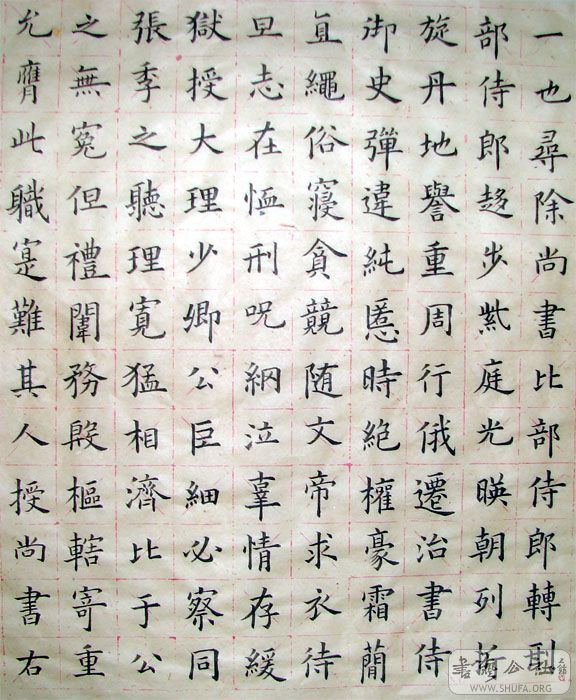 一也尋除尚書比部侍郎轉刑
部侍郎趍步紫庭光暎朝列折
旋丹地譽重周行俄遷治書侍
御史彈違糾慝時絕權豪霜簡
直繩俗寢貪競随文帝求衣待
旦志在恤刑呪網泣辜情存緩
獄授大理少卿公巨細必察同
張季之聽理寬猛相濟比于公
之無冤但禮闈務殷樞轄寄重
允膺此職寔難其人授尚書右
書法公社
WWW.SHUFA.ORG